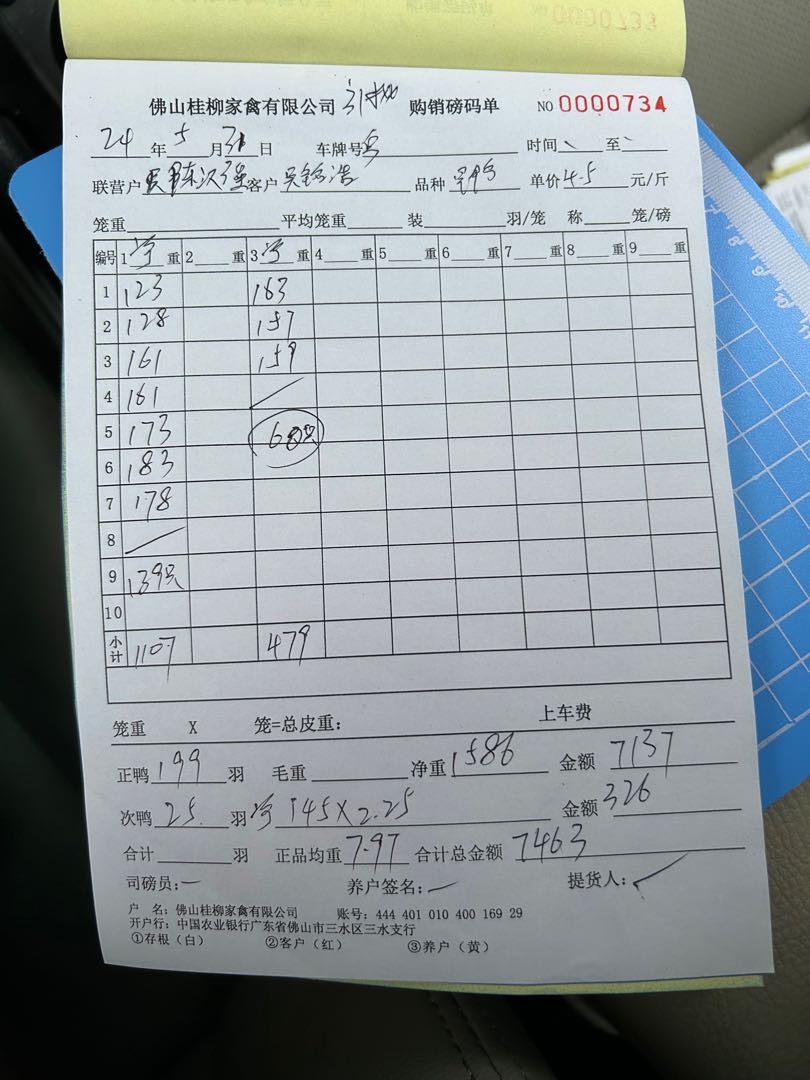 佛山桂柳家禽有限公司 购销磅码单 NO 0000734
24年5月31日 车牌号 时间 至
联营户 客户 品种 单价4.5元/斤
笼重 平均笼重 装 羽/笼 称 笼/磅
编号 1 净 重 2 重 3 净 重 4 重 5 重 6 重 7 重 8 重 9 重
1 123 163
2 128 157
3 161 159
4 161
5 173 60只
6 183
7 178
8
9 139只
10
小计 1107 479
笼重 X 笼=总皮重: 上车费
正鸭 199 羽 毛重 净重 1586 金额 7137
次鸭 25 羽 净 145X2.25 金额 326
合计 羽 正品均重 7.97 合计总金额 7463
司磅员: 养户签名: 提货人:
户 名: 佛山桂柳家禽有限公司 账号: 444 401 010 400 169 29
开户行: 中国农业银行广东省佛山市三水区三水支行
①存根(白) ②客户(红) ③养户(黄)